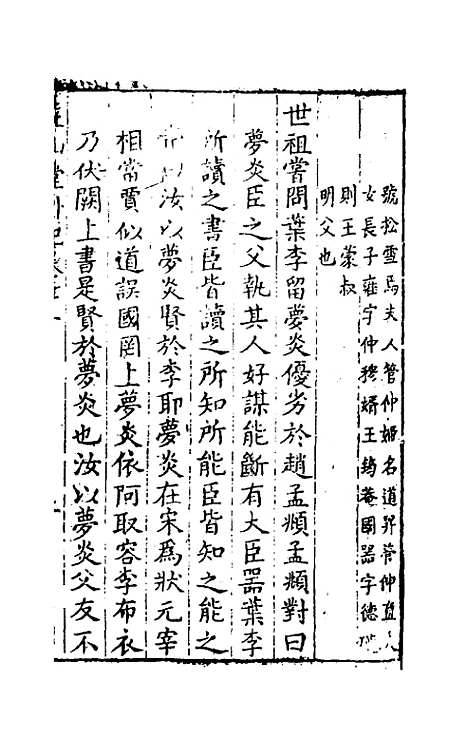 號松雪烏夫人管仲姬名道昇管仲
女長子雍字仲穆婿王筠菴國器字德
則王蒙叔
明父也
世祖嘗問葉李留夢炎優劣於趙孟頫孟頫對曰
夢炎臣之父執其人好謀能斷有大臣噐葉李
所讀之書臣皆讀之所知所能臣皆知之能之
汝以夢炎賢於李耶夢炎在宋爲狀元宰
相當賈似道誤國罔上夢炎依阿取容李布衣
乃伏闕上書是賢於夢炎也汝以夢炎父友不